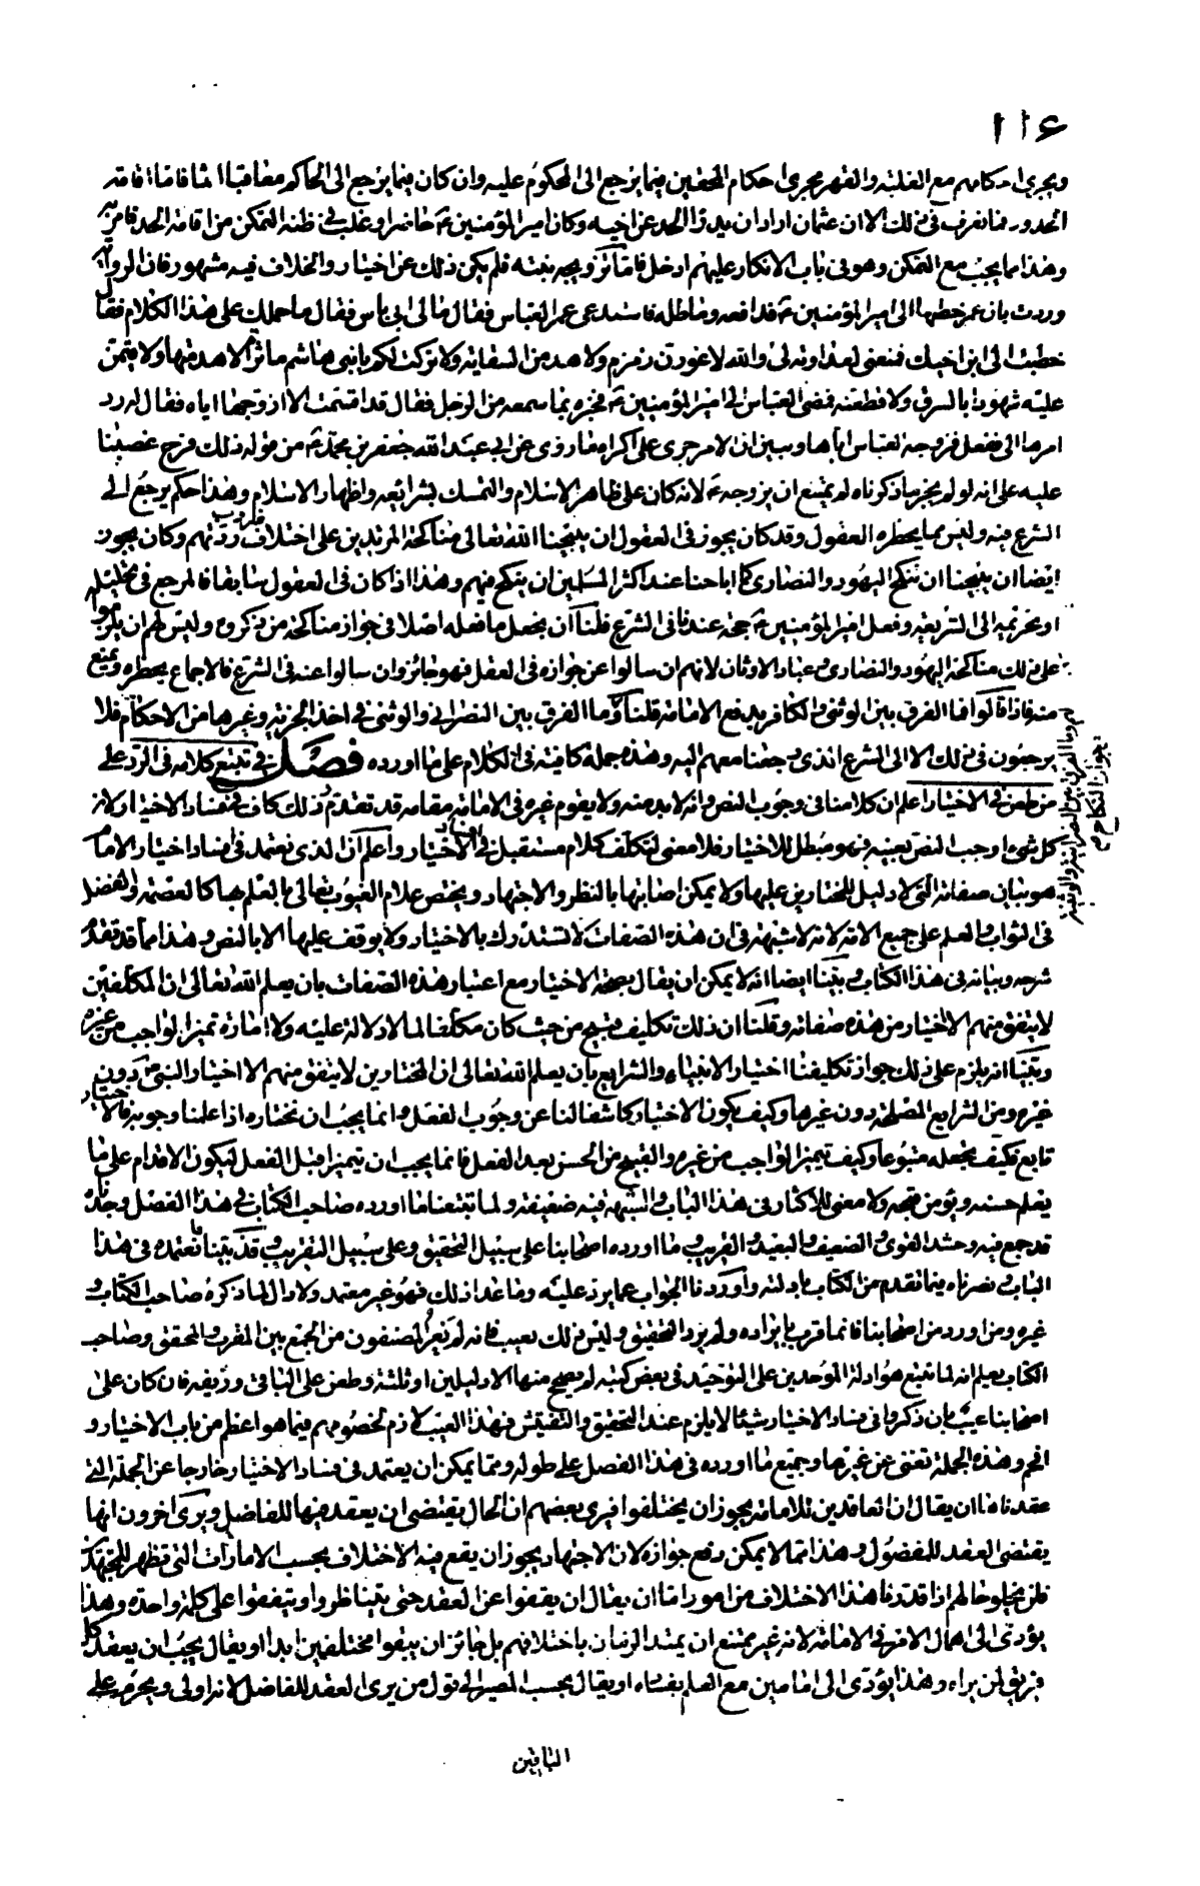 ١١٤
ويجري احكامهم مع الغلبة والقهر مجرى احكام المحقين فيما يرجع الى المحكوم عليه وان كان فيما يرجع الى الحاكم معاقبا اثما فاما اقامة
الحدود فما نعرف في ذلك الا ان عثمان اراد ان يدرأ الحد عن اخيه وكان امير المؤمنين ع حاضرا وغلب في ظنه التمكن من اقامة الحد فامر به
وهذا مما يجب مع التمكن وهو في باب الانكار عليهم ادخل فاما تزويجه بنته فلم يكن ذلك عن اختيار والخلاف فيه مشهور فان الرواية
وردت بان عمر خطبها الى امير المؤمنين ع فدافعه وماطله فاستدعى عمر العباس فقال ما لي ابي باس فقال ما حملك على هذا الكلام فقال
خطبت الى ابن اخيك فمنعني لعداوته لي والله لاغورن زمزم ولاهدمن السقاية ولا تركت لكم يا بني هاشم ماثرة الا هدمتها ولاقيمن
عليه شهودا بالسرق ولاقطعنه فمضى العباس الى امير المؤمنين ع فخبره بما سمعه من الرجل فقال قد اقسمت الا ازوجها اياه فقال له رد
امرها الي ففعل فزوجه العباس اياها ويبين ان الامر جرى على اكراه ما روي عن ابي عبد الله جعفر بن محمد ع من قوله ذلك فرج غصبنا
عليه على انه لو لم يجر ما ذكرناه لم يمتنع ان يزوجه ع لانه كان على ظاهر الاسلام والتمسك بشرائعه واظهار الاسلام وهذا حكم يرجع الى
الشرع فيه وليس مما يحظره العقول وقد كان يجوز في العقول ان يبيحنا الله تعالى مناكحة المرتدين على اختلاف ضروب ردتهم وكان يجوز
ايضا ان يبيحنا ان ننكح اليهود والنصارى كما اباحنا عند اكثر المسلمين ان ينكح فيهم وهذا اذا كان في العقول سايغا فالمرجع في تحليله
او تحريمه الى الشريعة وفعل امير المؤمنين ع حجة عندنا في الشرع فلنا ان نجعل ما فعله اصلا في جواز مناكحة من ذكروه وليس لهم ان يلزموا
على ذلك مناكحة اليهود والنصارى وعباد الاوثان لانهم ان سالوا عن جوازه في العقل فهو جائز وان سالوا عنه في الشرع فالاجماع يحظره ويمنع
منه فاذا قالوا فما الفرق بين الوثني والكافر بدفع الامامة قلنا لهم وما الفرق بين النصراني والوثني في اخذ الجزية وغيرها من الاحكام فلا
يرجعون في ذلك الا الى الشرع الذي رجعنا معهم اليه وهذه جملة كافية في الكلام على ما اورده فصل في تتبع كلامه في الرد على
من طعن في الاختيار اعلم ان كلامنا في وجوب النص وانه لا بد منه ولا يقوم غيره في الامامة مقامه قد تقدم وذلك كاف في فساد الاختيار ولان
كل شيء اوجب النص بعينه فهو مبطل للاختيار فلا معنى لتكلف كلام مستقبل في افساد الاختيار واعلم ان الذي نعتمد في افساد اختيار الامام
هو بيان صفاته التي لا دليل للمختارين عليها ولا يمكن اصابتها بالنظر والاجتهاد ويختص علام الغيوب تعالى بالعلم بها كالعصمة والفضل
في الثواب والعلم على جميع الامة لانه لا شبهة في ان هذه الصفات لا تستدرك بالاختيار ولا يوقف عليها الا بالنص وهذا مما قد تقدم
شرحه وبيانه في هذا الكتاب وبينا ايضا انه لا يمكن ان يقال بصحة الاختيار مع اعتبار هذه الصفات بان يعلم الله تعالى ان المكلفين
لا يتفق منهم الا اختيار من هذه صفاته وقلنا ان ذلك تكليف قبيح من حيث كان مكلفا لما لا دلالة عليه ولا امارة تميز الواجب من غيره
وبينا انه يلزم على ذلك جواز تكليفنا اختيار الانبياء والشرايع بان يعلم الله تعالى ان المختارين لا يتفق منهم الا اختيار النبي من دون
غيره ومن الشرايع المصلحة دون غيرها وكيف يكون الاختيار كاشفا لنا عن وجوب الفعل وانما يجب ان نختاره اذا علمنا وجوبه فالاختيار
تابع فكيف نجعله متبوعا وكيف يتميز الواجب من غيره والقبيح من الحسن بعد الفعل فانما يجب ان يتميزا قبل الفعل ليكون الاقدام على ما
يعلم حسنه ويؤمن قبحه ولا معنى للاكثار في هذا الباب والشبهة فيه ضعيفة ولما تتبعنا ما اورده صاحب الكتاب في هذا الفصل وجدناه
قد جمع فيه وحشد القوي والضعيف والبعيد والقريب وما اورده اصحابنا على سبيل التحقيق وعلى سبيل التقريب وقد بينا ما نعتمده في هذا
الباب ونصرناه فيما تقدم من الكتاب بادلته واوردنا الجواب عما يرد عليه وما عدا ذلك فهو غير معتمد ولا دال لما ذكره صاحب الكتاب و
غيره ومن اورد من اصحابنا فانما قرب بايراده ولم يرد التحقيق وليس ذلك بعيب فانه لم يعر المصنفون من الجمع بين المقرب والمحقق وصاحب
الكتاب يعلم انه لما تتبع هو ادلة الموحدين على التوحيد في بعض كتبه لم يصح منها الا دليلين او ثلثة وطعن على الباقي وزيفه فان كان على
اصحابنا عيب بان ذكروا في فساد الاختيار شيئا لا يلزم عند التحقيق والتفتيش فهذا العيب لازم لخصومهم فيما هو اعظم من باب الاختيار و
افخم وهذه الجملة تغني عن غيرها وجميع ما اورده في هذا الفصل على طوله ومما يمكن ان يعتمد في فساد الاختيار خارجا عن الجملة التي
عقدناها ان يقال ان العاقدين للامامة يجوز ان يختلفوا فيرى بعضهم ان الحال يقتضي ان يعقد فيها للفاضل ويرى اخرون انها
يقتضي العقد للمفضول وهذا مما لا يمكن دفع جوازه لان الاجتهاد يجوز ان يقع فيه الاختلاف بحسب الامارات التي تظهر للمجتهد
فلن يخلو حالهم اذا قدرنا هذا الاختلاف من امور اما ان يقال ان يقفوا عن العقد حتى يتناظروا ويتفقوا على كلمة واحدة وهذا
يؤدي الى اهمال الامر في الامامة لانه غير ممتنع ان يمتد الزمان باختلافهم بل جائز ان يبقوا مختلفين ابدا او يقال يجب ان يعقد كل
فريق لمن يراه وهذا يؤدي الى امامين مع العلم بفساده او يقال يجب المصير الى قول من يرى العقد للفاضل لانه اولى ويحرم على
الباقين